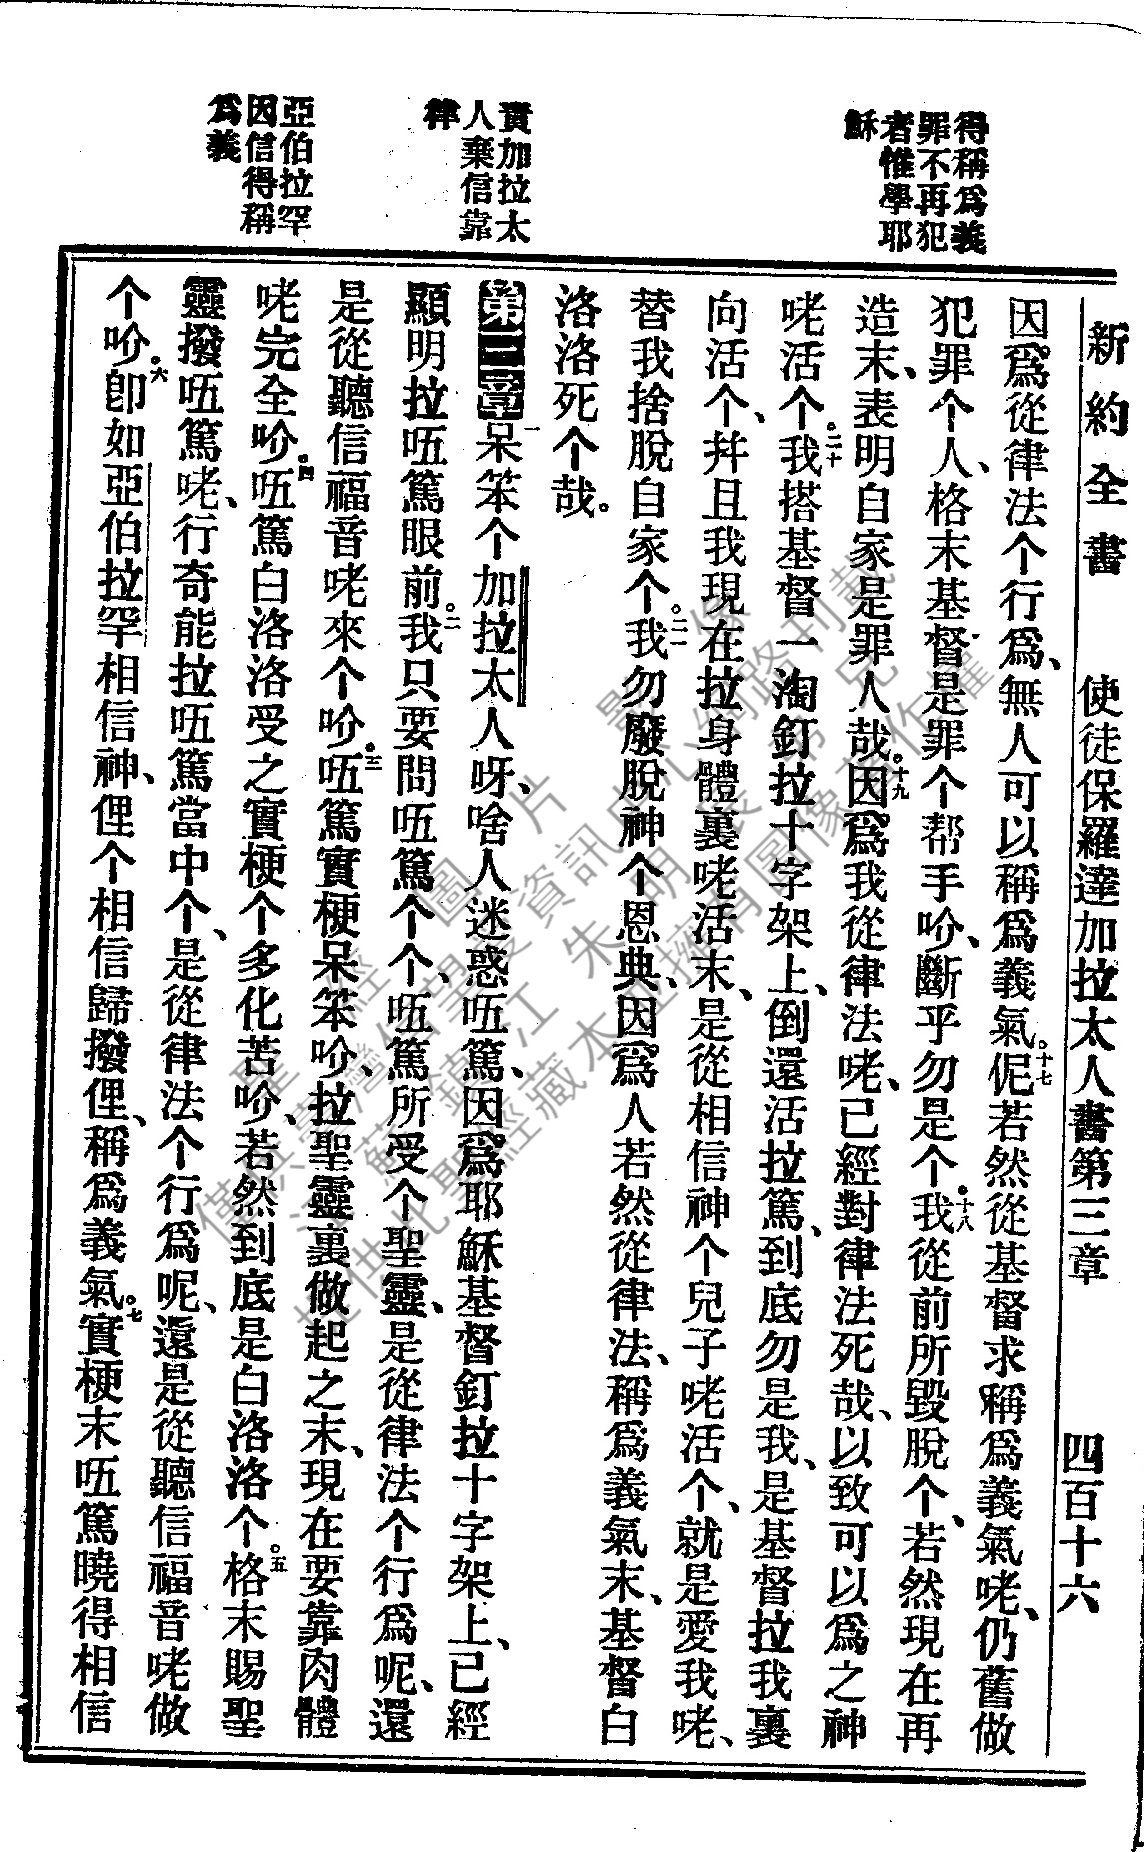 新約全書 使徒保羅達加拉太人書第三章 四百十六
得稱爲義
罪不再犯
者惟學耶
穌
責加拉太
人棄信靠
律
亞伯拉罕
因信得稱
爲義
因爲從律法个行爲、無人可以稱爲義氣。十七伲若然從基督求稱爲義氣咾、仍舊做
犯罪个人、格末基督是罪个帮手吤、斷乎勿是个。十八我從前所毀脫个、若然現在再
造末、表明自家是罪人哉。十九因爲我從律法咾、已經對律法死哉、以致可以爲之神
咾活个。二十我搭基督一淘釘拉十字架上、倒還活拉篤、到底勿是我、是基督拉我裏
向活个、幷且我現在拉身體裏咾活末、是從相信神个兒子咾活个、就是愛我咾、
替我捨脫自家个。二一我勿廢脫神个恩典、因爲人若然從律法、稱爲義氣末、基督白
洛洛死个哉。
第三章一呆笨个加拉太人呀、啥人迷惑㕶篤、因爲耶穌基督釘拉十字架上、已經
顯明拉㕶篤眼前。二我只要問㕶篤个个、㕶篤所受个聖靈、是從律法个行爲呢、還
是從聽信福音咾來个吤。三㕶篤實梗呆笨吤、拉聖靈裏做起之末、現在要靠肉體
咾完全吤。四㕶篤白洛洛受之實梗个多化苦吤、若然到底是白洛洛个。五格末賜聖
靈撥㕶篤咾、行奇能拉㕶篤當中个、是從律法个行爲呢、還是從聽信福音咾做
个吤。六卽如亞伯拉罕相信神、俚个相信歸撥俚、稱爲義氣。七實梗末㕶篤曉得相信
聖經圖片影像